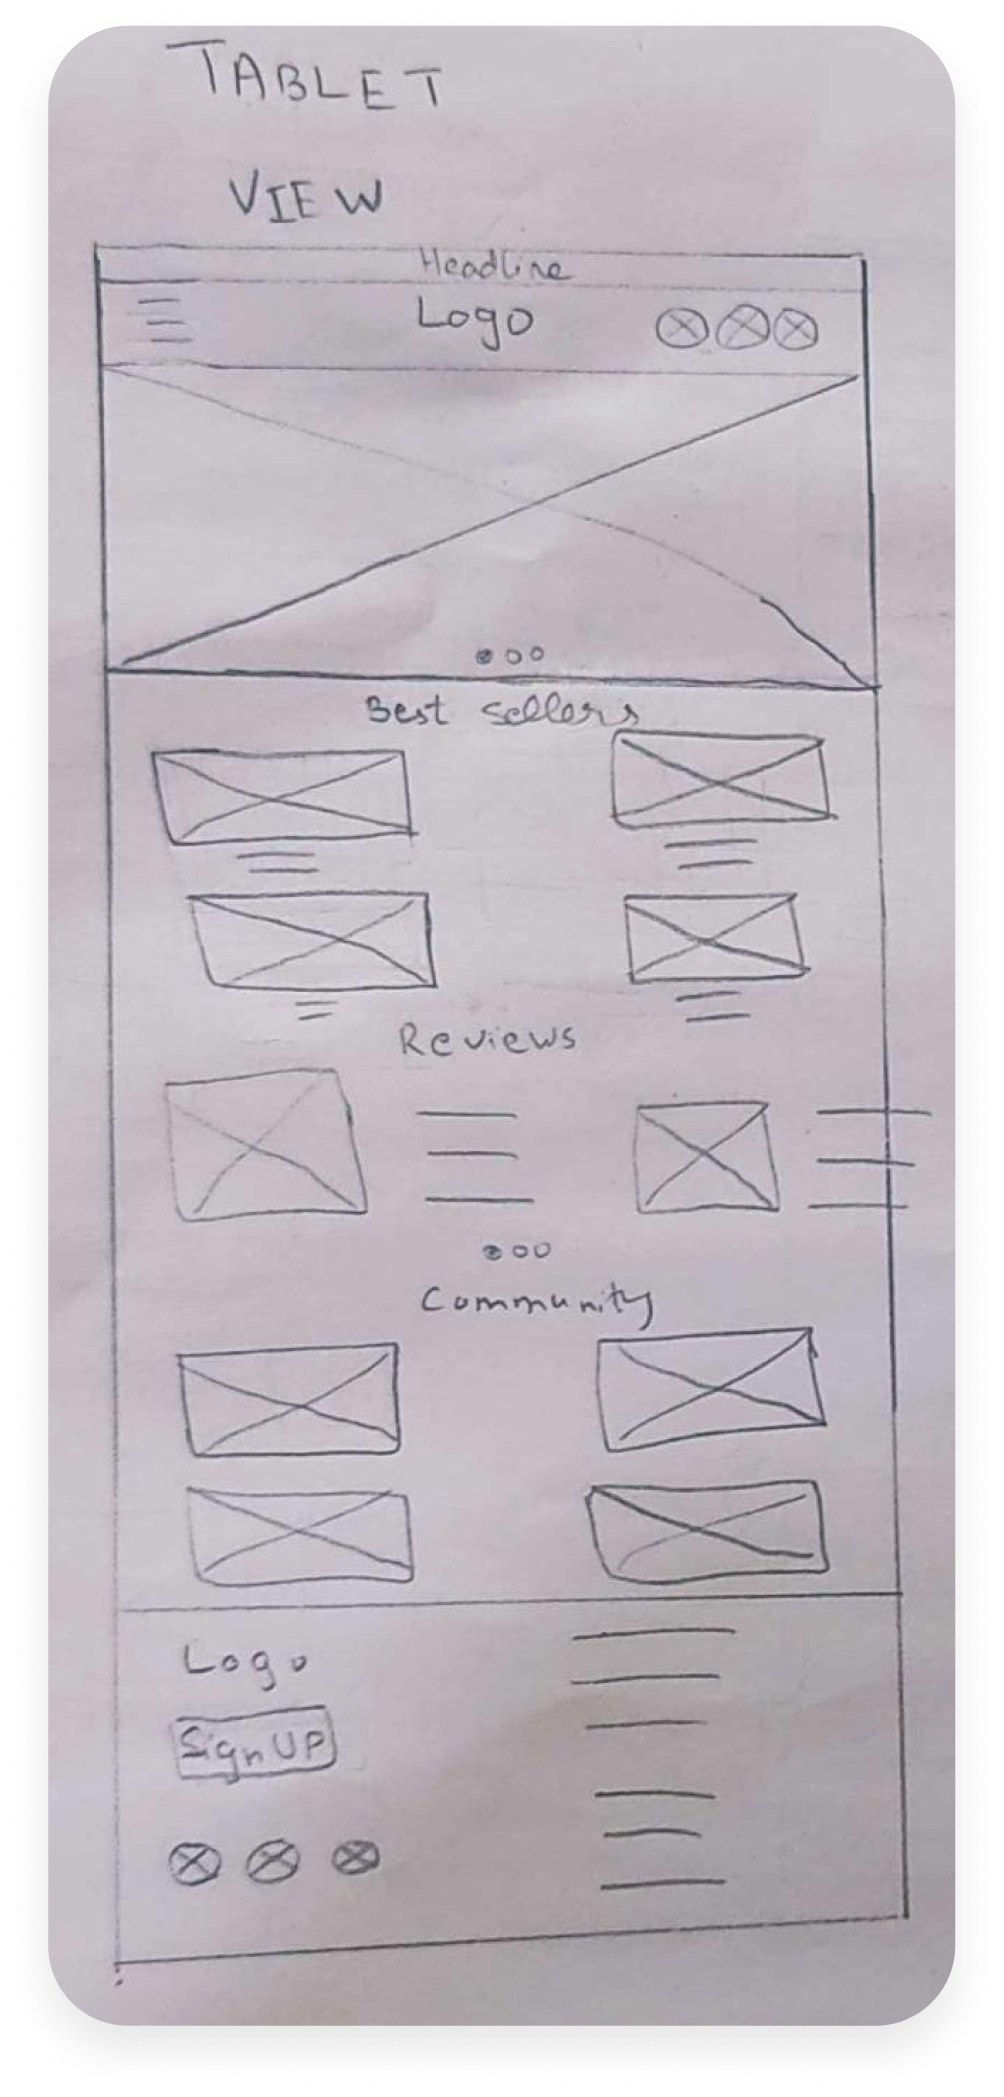 TABLET
VIEW
Headline
Logo
Best Sellers
Reviews
Community
Logo
Sign UP